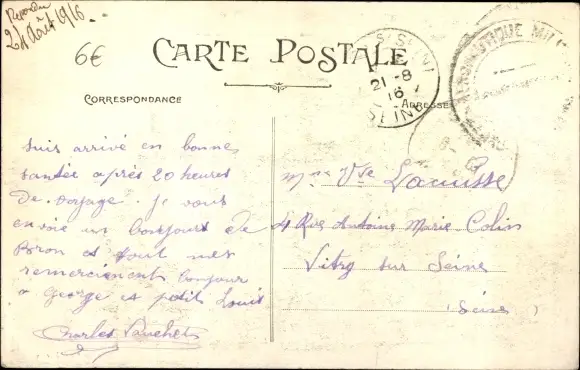 Répondu
24 Août 1916
6€
CARTE POSTALE
CORRESPONDANCE
ADRESSE
21-8
16
SEINE
AERONAUTIQUE MILI
suis arrivé en bonnes
santée après 20 heures
de voyage. Je vous
envoie un bonjours de
Bron et tout mes
remerciement bonjour
a George et petit Louis
Charles
Mme Vve
4 Rue Antoine Marie Colin
Vitry sur Seine
Seine